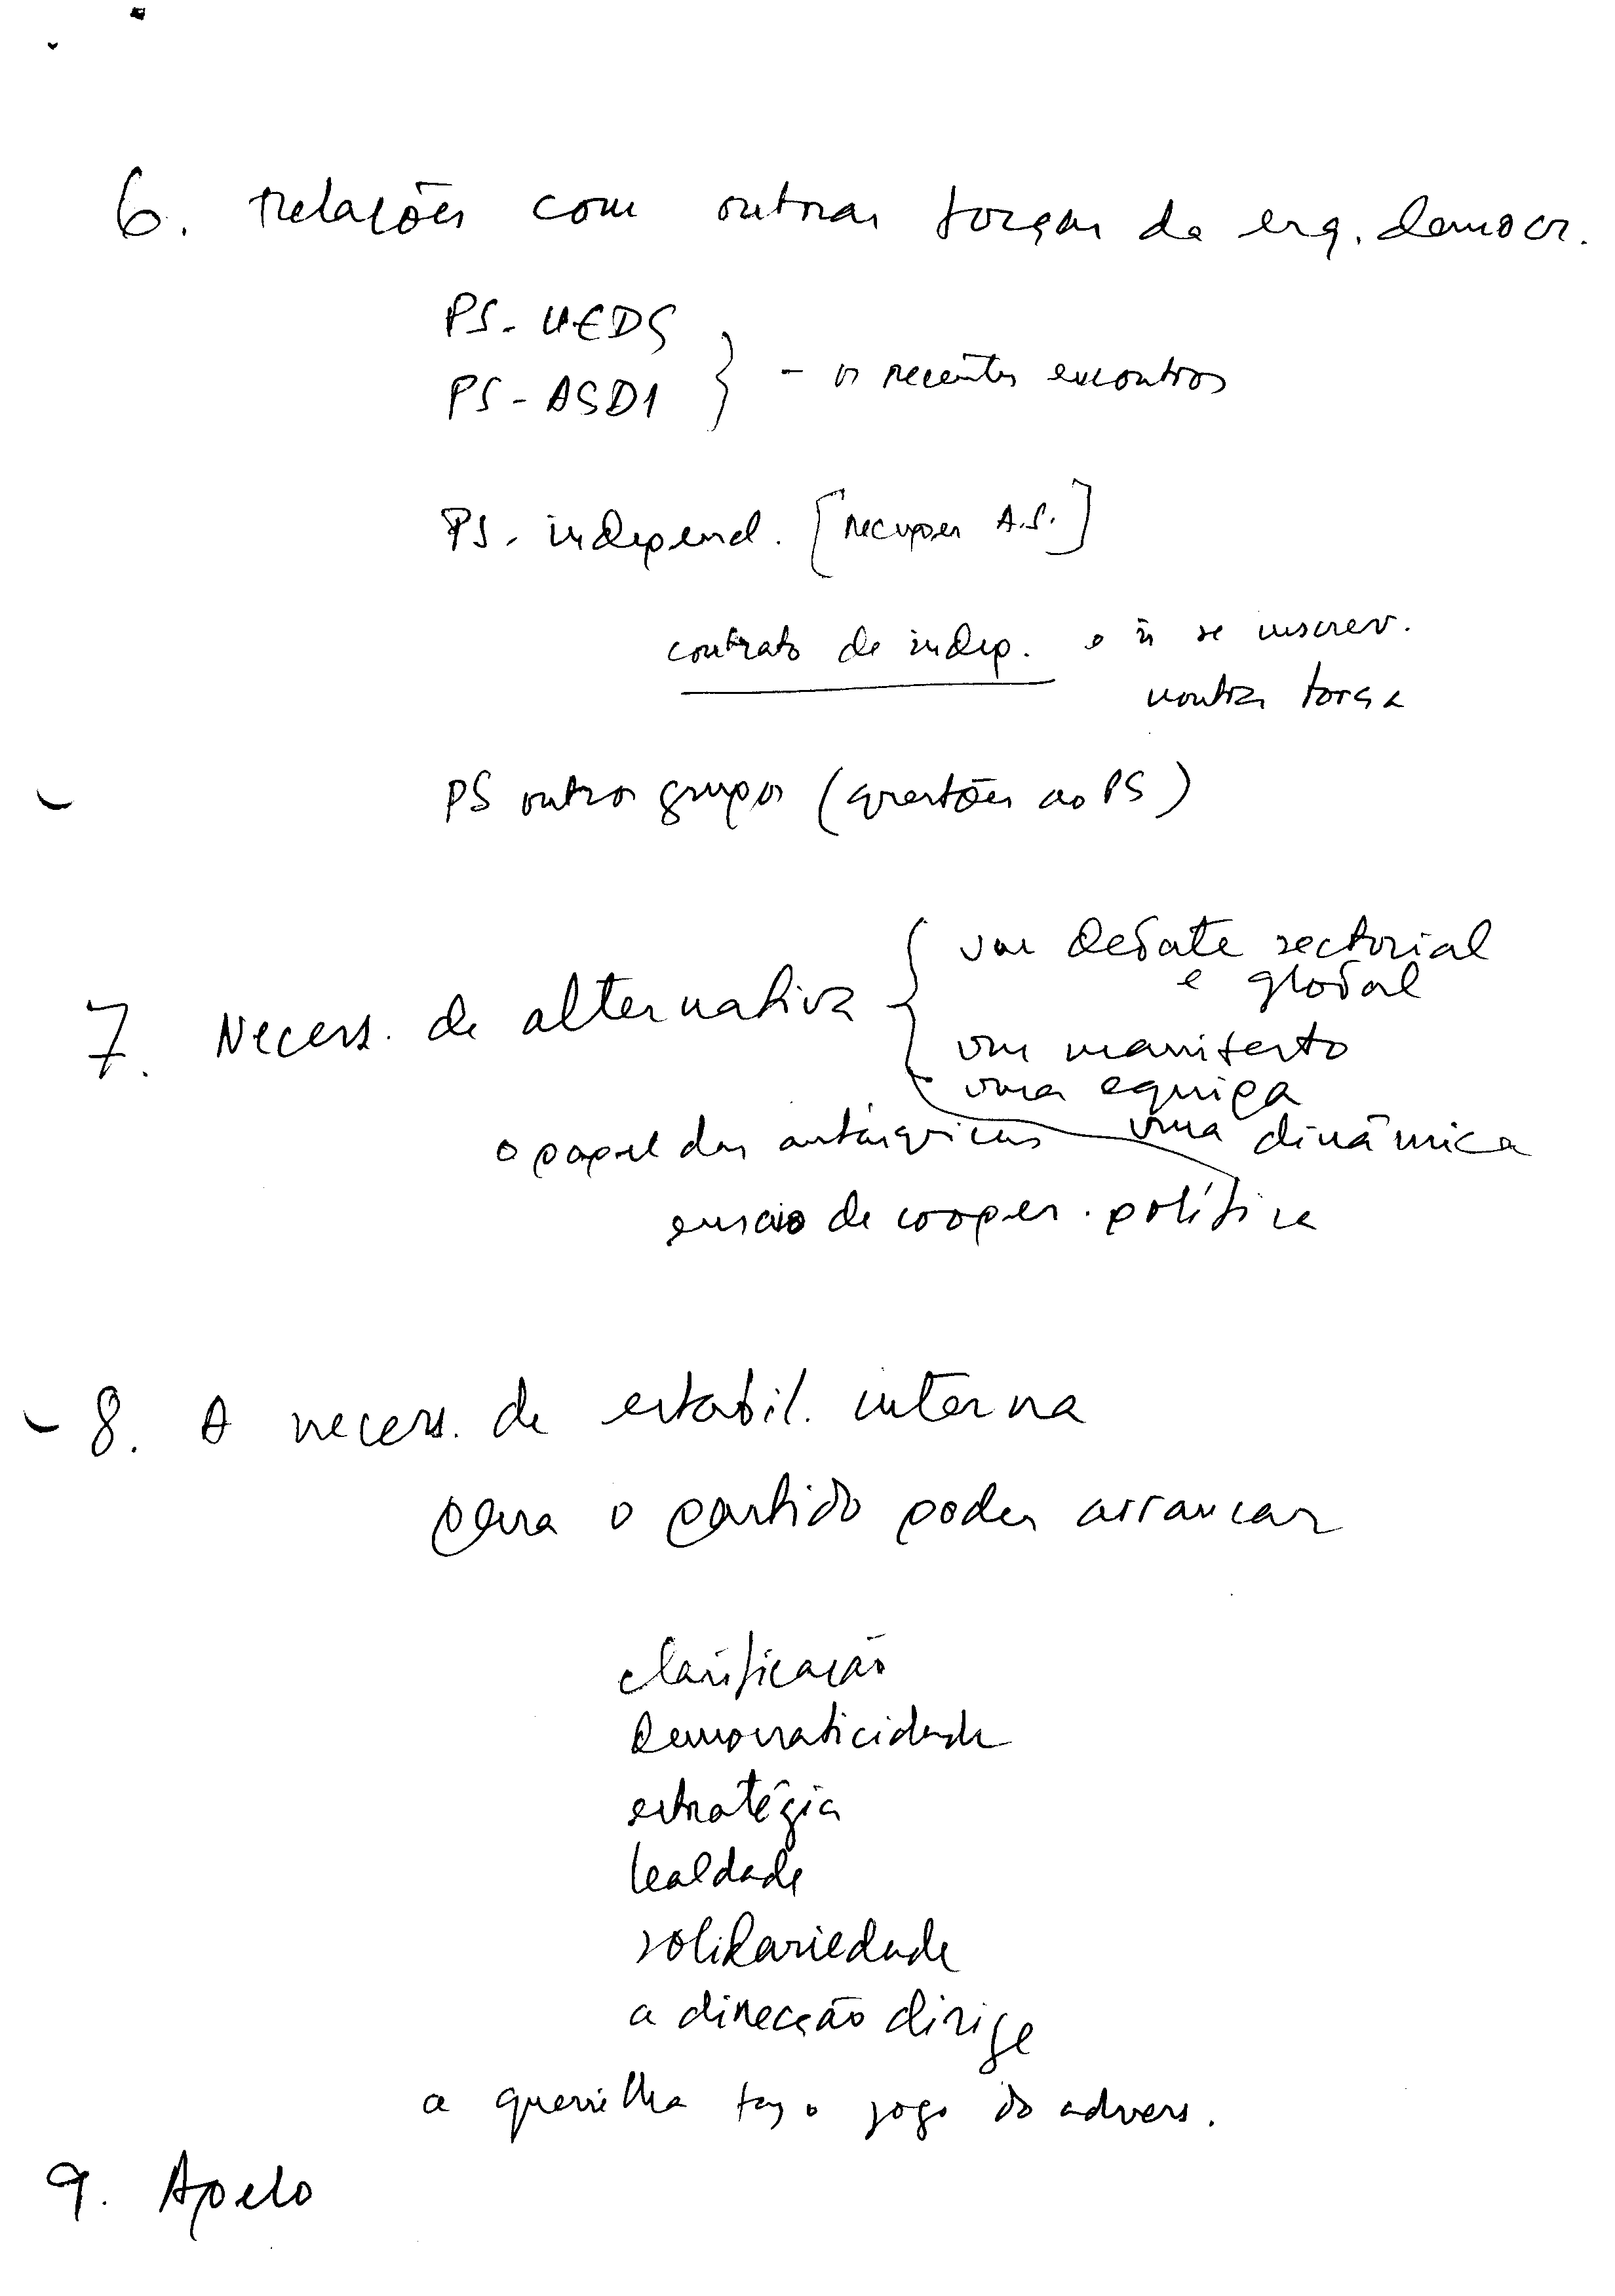 6. Relações com outras forças da esq. democr.
PS - UEDS
PS - ASDI } - os recentes encontros
PS - independ. [recuper A.S.]
contrato de indep. e ñ se inscrev.
noutra força
PS outros grupos (questões ao PS)
7. Necess. de alternativa { um debate sectorial
e global
um manifesto
uma equipa
uma dinâmica
o papel das autárquicas
ensaio de cooper. política
- 8. A necess. de estabil. interna
para o partido poder arrancar
clarificação
democraticidade
estratégia
lealdade
solidariedade
a direcção dirige
a guerrilha faz o jogo do advers.
9. Apelo